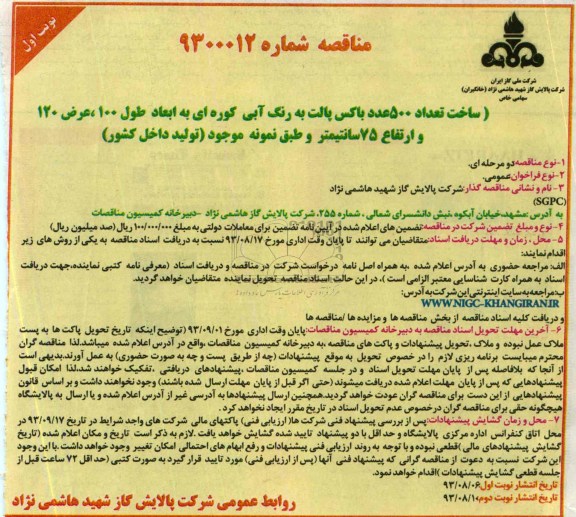 نوبت اول
مناقصه شماره ۹۳۰۰۰۱۲
شرکت ملی گاز ایران
شرکت پالایش گاز شهید هاشمی نژاد (خانگیران)
سهامی خاص
( ساخت تعداد ۵۰۰عدد باکس پالت به رنگ آبی کوره ای به ابعاد طول ۱۰۰ ،عرض ۱۲۰
و ارتفاع ۷۵سانتیمتر و طبق نمونه موجود (تولید داخل کشور)
۱-نوع مناقصه:دو مرحله ای.
۲-نوع فراخوان:عمومی.
۳- نام و نشانی مناقصه گذار:شرکت پالایش گاز شهید هاشمی نژاد
(SGPC)
به آدرس :مشهد،خیابان آبکوه ،نبش دانشسرای شمالی ، شماره ۲۵۵، شرکت پالایش گاز هاشمی نژاد -دبیرخانه کمیسیون مناقصات
۴- نوع و مبلغ تضمین شرکت در مناقصه:تضمین های اعلام شده در آئین نامه تضمین برای معاملات دولتی به مبلغ ۱۰۰/۰۰۰/۰۰۰ ریال (صد میلیون ریال)
۵- محل ، زمان و مهلت دریافت اسناد:متقاضیان می توانند تا پایان وقت اداری مورخ ۹۳/۰۸/۱۷ نسبت به دریافت اسناد مناقصه به یکی از روش های زیر
اقدام نمایند:
الف: مراجعه حضوری به آدرس اعلام شده ،به همراه اصل نامه درخواست شرکت در مناقصه و دریافت اسناد (معرفی نامه کتبی نماینده،جهت دریافت
اسناد به همراه کارت شناسایی معتبر الزامی است )، در این حالت اسناد مناقصه تحویل نماینده متقاضیان خواهد گردید.
ب:مراجعه به سایت اینترنتی این شرکت به آدرس:
WWW.NIGC-KHANGIRAN.IR
و دریافت کلیه اسناد مناقصه از بخش مناقصه ها و مزایده ها /مناقصه ها
۶- آخرین مهلت تحویل اسناد مناقصه به دبیرخانه کمیسیون مناقصات:پایان وقت اداری مورخ ۹۳/۰۹/۰۱ (توضیح اینکه تاریخ تحویل پاکت ها به پست
ملاک عمل نبوده و ملاک ،تحویل پیشنهادات و پاکت های مناقصه ،به دبیرخانه کمیسیون مناقصات ،واقع در آدرس اعلام شده میباشد.لذا مناقصه گران
محترم میبایست برنامه ریزی لازم را در خصوص تحویل به موقع پیشنهادات (چه از طریق پست و چه به صورت حضوری) به عمل آورند.بدیهی است
از آنجا که بلافاصله پس از پایان مهلت تحویل اسناد و در جلسه کمیسیون مناقصات ،پیشنهادهای دریافتی ،تفکیک خواهند شد،لذا امکان قبول
پیشنهادهایی که پس از پایان مهلت اعلام شده دریافت میشوند (حتی اگر قبل از پایان مهلت ارسال شده باشند) وجود نخواهند داشت و بر اساس قانون
پیشنهادهایی از این دست برای مناقصه گران عودت خواهد گردید.همچنین ارسال پیشنهادها به آدرسی غیر از آدرس اعلام شده و یا ارسال به پالایشگاه
هیچگونه حقی برای مناقصه گران درخصوص عدم تحویل اسناد در تاریخ مقرر ایجاد نخواهد کرد.
۷- محل و زمان گشایش پیشنهادات:پس از بررسی پیشنهاد فنی شرکت ها( ارزیابی فنی) پاکتهای مالی شرکت های واجد شرایط در تاریخ ۹۳/۰۹/۱۷ در
محل اتاق کنفرانس اداره مرکزی پالایشگاه و حداقل با دو پیشنهاد تایید شده گشایش خواهد یافت. لازم به ذکر است تاریخ و مکان اعلام شده (تاریخ
گشایش پیشنهادهای مالی)قطعی نبوده و با توجه به روند ارزیابی فنی پیشنهادات و رفع ابهام های احتمالی امکان تغییر وجود خواهد داشت .با این وجود
این شرکت نسبت به دعوت از مناقصه گرانی که پیشنهاد فنی آنها (پس از ارزیابی فنی) مورد تایید قرار گیرد به صورت کتبی (حداقل ۷۲ ساعت قبل از
جلسه قطعی گشایش پیشنهادات )اقدام خواهد نمود.
تاریخ انتشار نوبت اول:۹۳/۰۸/۰۶
تاریخ انتشار نوبت دوم:۹۳/۰۸/۱۰
روابط عمومی شرکت پالایش گاز شهید هاشمی نژاد